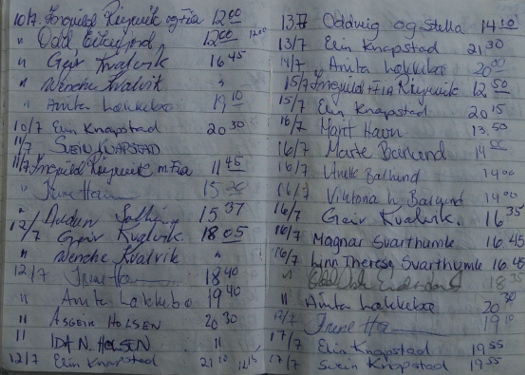 10/7. Ingvild Rieynvik og Fia 12 00
" Odd 12 00
" Geir Kvalvik 16 45
" Wenche Kvalvik "
" Anita Løkkebø 19 10
10/7 Elin Knapstad 20 30
11/7 SVEIN KNAPSTAD
11/7. Ingvild m. Fia 11 45
" Irene 15
" Audun 15 37
12/7 Geir Kvalvik 18 05
" Wenche Kvalvik "
12/7 Irene 18 40
" Anita Løkkebø 19 40
" ASGEIR HOLSEN 20 30
" IDA N. HOLSEN "
12/7 Elin Knapstad 21 10
13/7 Oddveig og Stella 14 10
13/7 Elin Knapstad 21 30
14/7 Anita Løkkebø 20 00
15/7 Ingvild + Fia 12 50
15/7 Elin Knapstad 20 15
16/7 Marit Havn 13.50
16/7 Marte Barlund 14 00
16/7 Barlund 14 00
16/7 Viktoria h. Barlund 14 00
16/7 Geir Kvalvik. 16 35
16/7 Magnar Svarthumle 16.45
16/7 Linn Therese Svarthumle 16.45
" Odd 18 35
" Anita Løkkebø 20 30
17/7 Irene 19 10
17/7 Elin Knapstad 19 55
17/7 Svein Knapstad 19 55